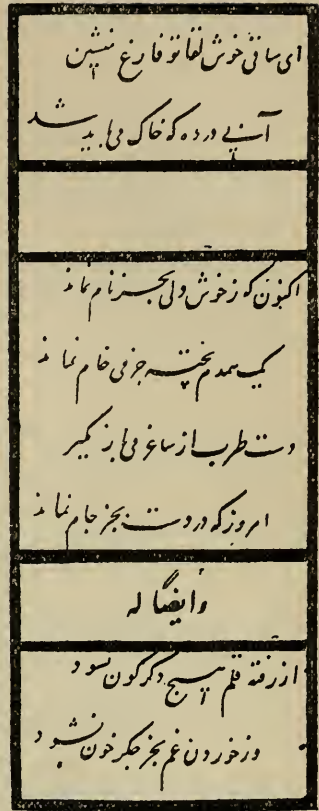 ای ساقی خوش لقا تو فارغ منشین
آبی در ده که خاک می باید شد
اکنون که ز خوش دلی بجز نام نماند
یک همدم پخته جز می خام نماند
دست طرب از ساغر می باز مگیر
امروز که در دست بجز جام نماند
وایضا له
از رفته قلم هیچ دگرگون نشود
وز خوردن غم بجز جگر خون نشود